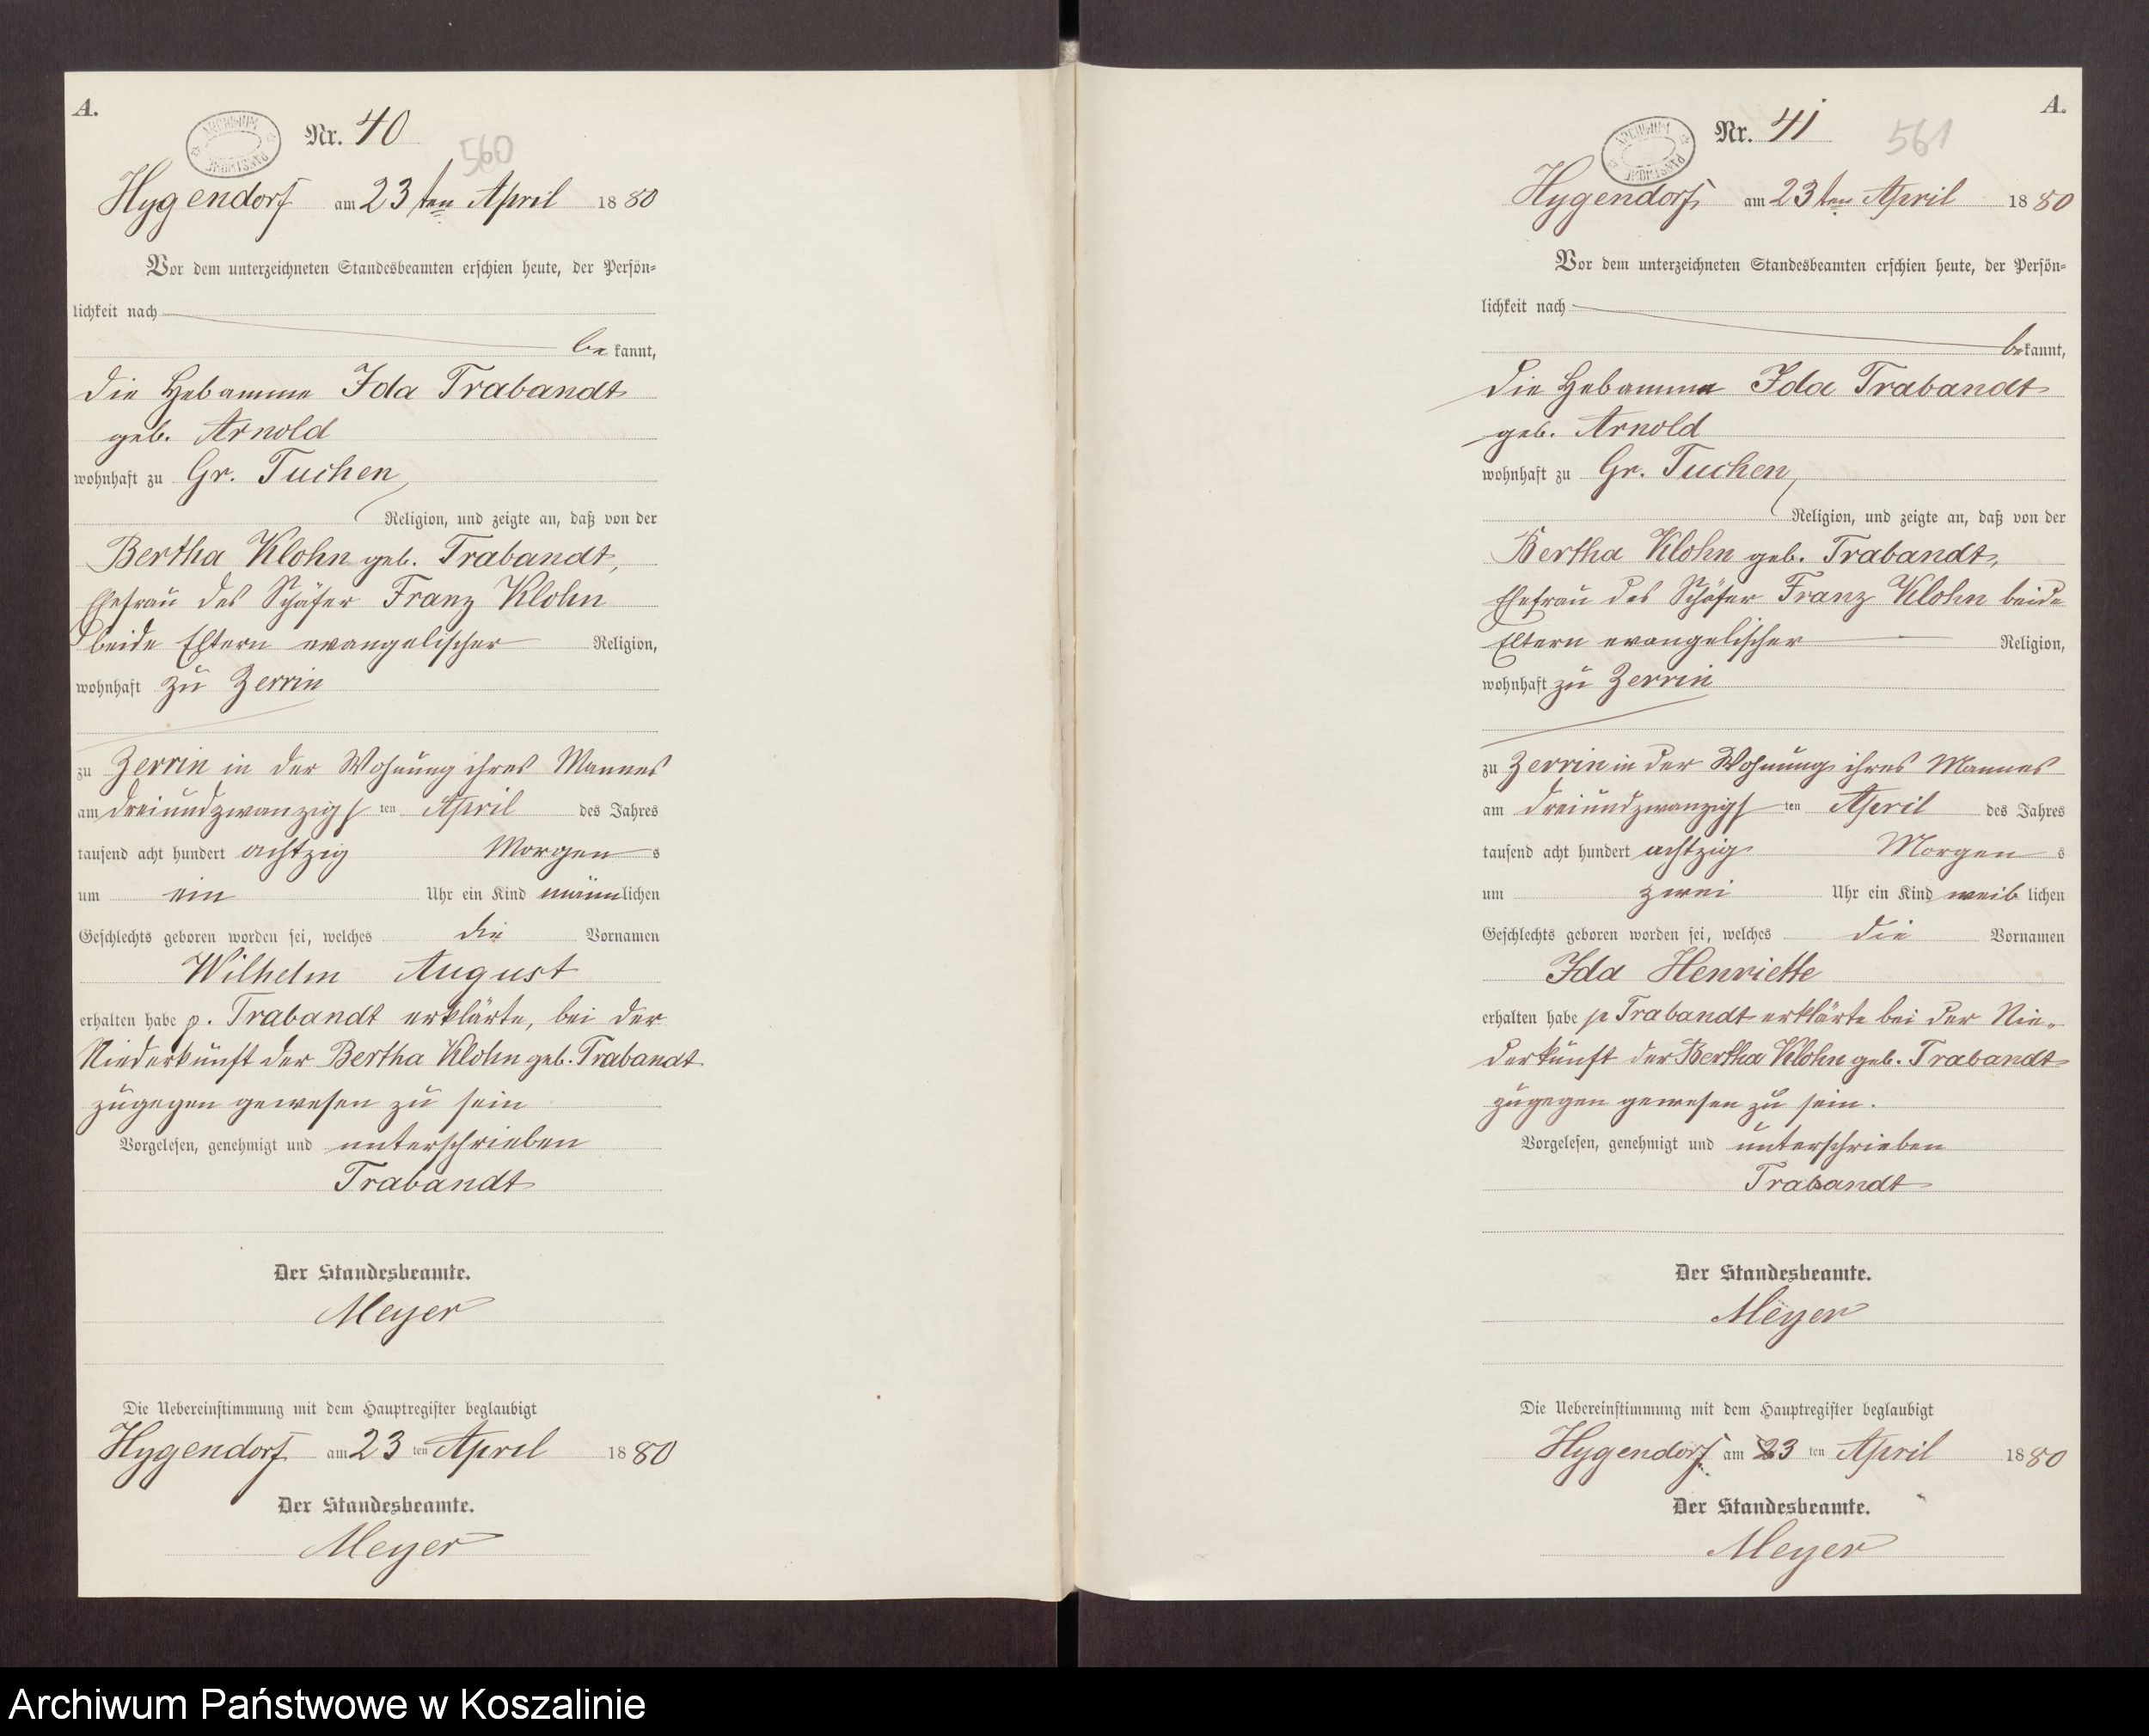 A.
ARCHIWUM PAŃSTWOWE
Nr. 40
560
Hygendorf am 23ten April 1880
Vor dem unterzeichneten Standesbeamten erschien heute, der Persön-
lichkeit nach
bekannt,
die Hebamme Ida Trabandt
geb. Arnold
wohnhaft zu Gr. Tuchen,
Religion, und zeigte an, daß von der
Bertha Klohn geb. Trabandt,
Ehefrau des Schäfer Franz Klohn
beide Eltern evangelischer Religion,
wohnhaft zu Zerrin
zu Zerrin in der Wohnung ihres Mannes
am dreiundzwanzigsten April des Jahres
tausend acht hundert achtzig Morgens
um ein Uhr ein Kind männlichen
Geschlechts geboren worden sei, welches die Vornamen
Wilhelm August
erhalten habe p. Trabandt erklärte, bei der
Niederkunft der Bertha Klohn geb. Trabandt
zugegen gewesen zu sein
Vorgelesen, genehmigt und unterschrieben
Trabandt
Der Standesbeamte.
Meyer
Die Uebereinstimmung mit dem Hauptregister beglaubigt
Hygendorf am 23ten April 1880
Der Standesbeamte.
Meyer
A.
ARCHIWUM PAŃSTWOWE
Nr. 41
561
Hygendorf am 23ten April 1880
Vor dem unterzeichneten Standesbeamten erschien heute, der Persön-
lichkeit nach
bekannt,
die Hebamme Ida Trabandt
geb. Arnold
wohnhaft zu Gr. Tuchen,
Religion, und zeigte an, daß von der
Bertha Klohn geb. Trabandt,
Ehefrau des Schäfer Franz Klohn beide
Eltern evangelischer Religion,
wohnhaft zu Zerrin
zu Zerrin in der Wohnung ihres Mannes
am dreiundzwanzigsten April des Jahres
tausend acht hundert achtzig Morgens
um zwei Uhr ein Kind weiblichen
Geschlechts geboren worden sei, welches die Vornamen
Ida Henriette
erhalten habe p Trabandt erklärte bei der Nie-
derkunft der Bertha Klohn geb. Trabandt
zugegen gewesen zu sein.
Vorgelesen, genehmigt und unterschrieben
Trabandt
Der Standesbeamte.
Meyer
Die Uebereinstimmung mit dem Hauptregister beglaubigt
Hygendorf am 23ten April 1880
Der Standesbeamte.
Meyer
Archiwum Państwowe w Koszalinie